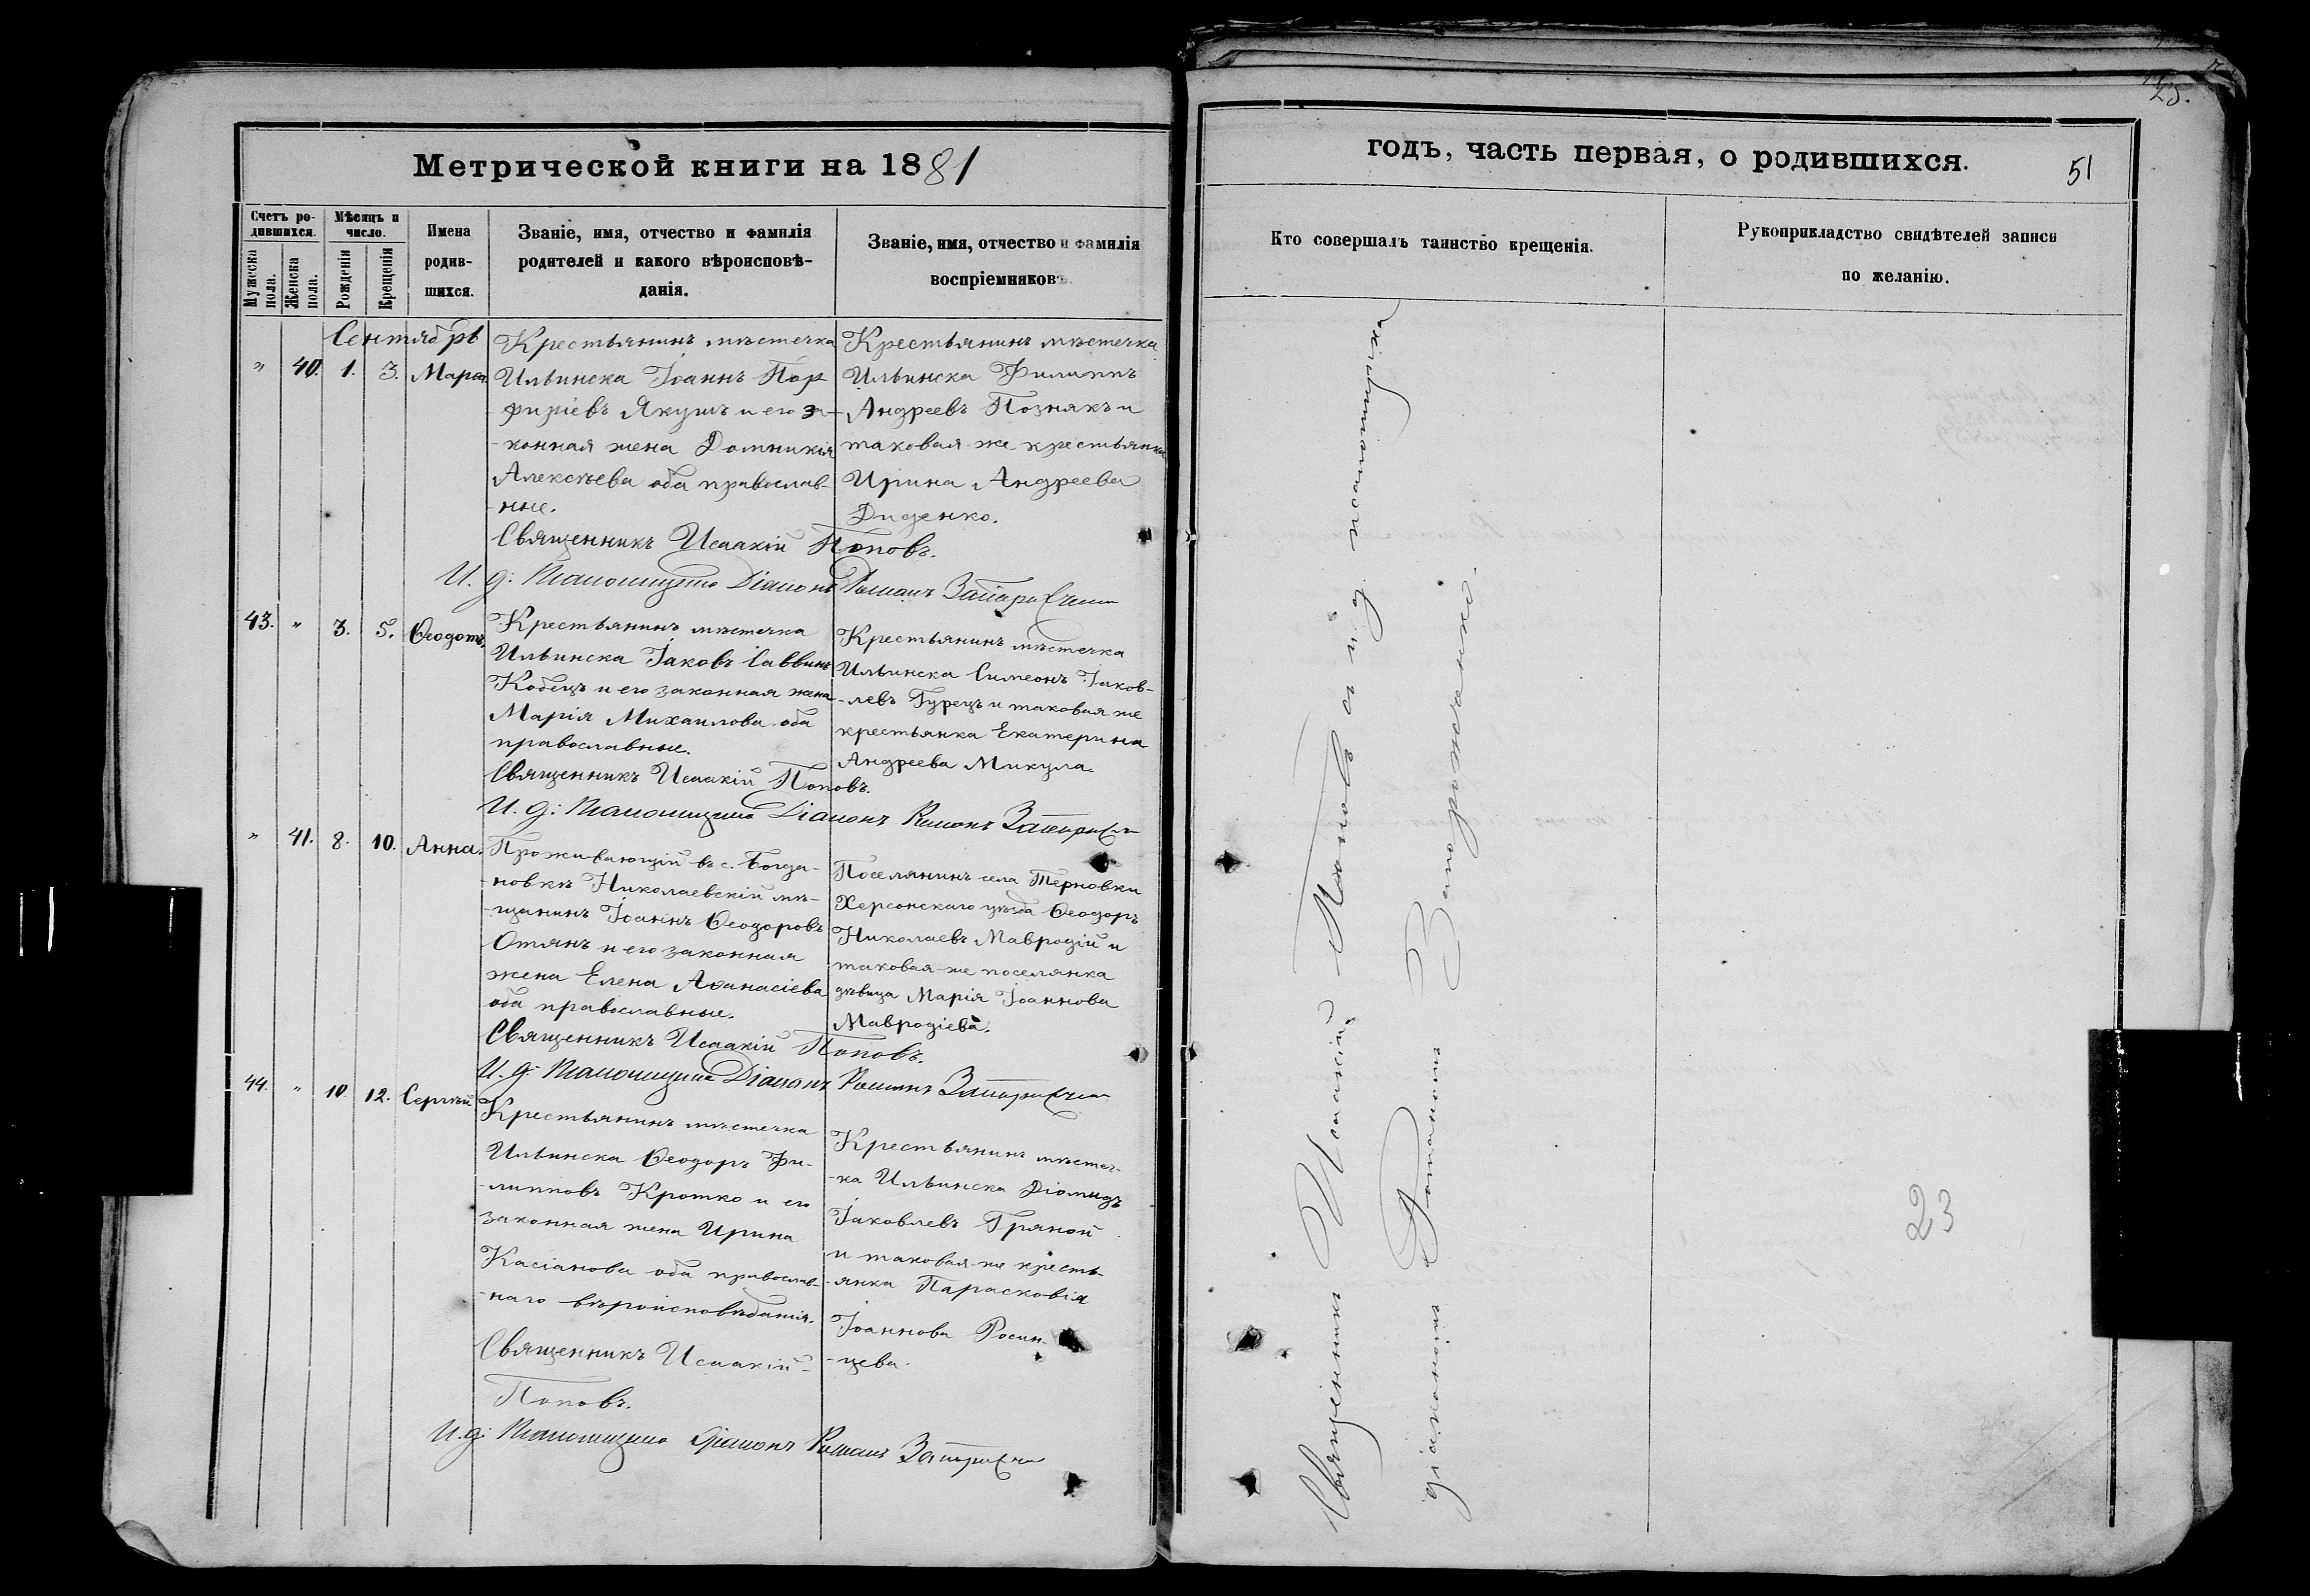 Метрической книги на 1881
Счетъ родившихся.
Мужеска пола.
Женска пола.
Мѣсяцъ и число.
Рожденія
Крещенія
Имена родившихся.
Званіе, имя, отчество и фамилія
родителей и какого вѣроисповѣ-
данія.
Званіе, имя, отчество и фамилія
воспріемниковъ.
Сентябрь
" 40. 1. 3. Марѳа.
Крестьянинъ мѣстечка
Ильинска Іоаннъ Пор
фиріевъ Якушъ и его за-
-конная жена Домникія
Алексѣева оба православ-
-ные.
Крестьянинъ мѣстечка
Ильинска Филиппъ
Андреевъ Познякъ и
таковая-же крестьянка
Ирина Андреева
Диденко.
Священникъ Исаакій Поповъ.
И. д: псаломщика Діаконъ Романъ
43. " 3. 5. Ѳеодотъ.
Крестьянинъ мѣстечка
Ильинска Іаковъ Саввинъ
Кобецъ и его законная жена
Марія Михаилова оба
православные.
Крестьянинъ мѣстечка
Ильинска Симеонъ Іаков-
-левъ Гурецъ и таковая-же
крестьянка Екатерина
Андреева Микула.
Священникъ Исаакій Поповъ.
И. д: псаломщика Діаконъ Романъ
" 41. 8. 10. Анна.
Проживающій въ с. Богда-
-новкѣ Николаевскій мѣ-
-щанинъ Іоаннъ Ѳеодоровъ
Отянъ и его законная
жена Елена Аѳанасіева
оба православные.
Поселянинъ села Терновки
Херсонскаго уѣзда Ѳеодоръ
Николаевъ Мавродій и
таковая-же поселянка
дѣвица Марія Іоаннова
Мавродіева.
Священникъ Исаакій Поповъ.
И. д: псаломщика Діаконъ Романъ
44. " 10. 12. Сергѣй
Крестьянинъ мѣстечка
Ильинска Ѳеодоръ Фи-
-липповъ Кротко и его
законная жена Ирина
Касіанова оба православ-
-наго вѣроисповѣданія.
Крестьянинъ мѣстеч-
-ка Ильинска Діомидъ
Іаковлевъ Гряной
и таковая-же кресть-
-янка Парасковія
Іоаннова Росин-
-цева.
Священникъ Исаакій
Поповъ.
И. д: псаломщика Діаконъ Романъ
годъ, часть первая, о родившихся.
51
Кто совершалъ таинство крещенія.
Рукоприкладство свидѣтелей записи
по желанію.
Священникъ Исаакій Поповъ съ и. д. псаломщика
діакономъ Романомъ Запорожченко.
23